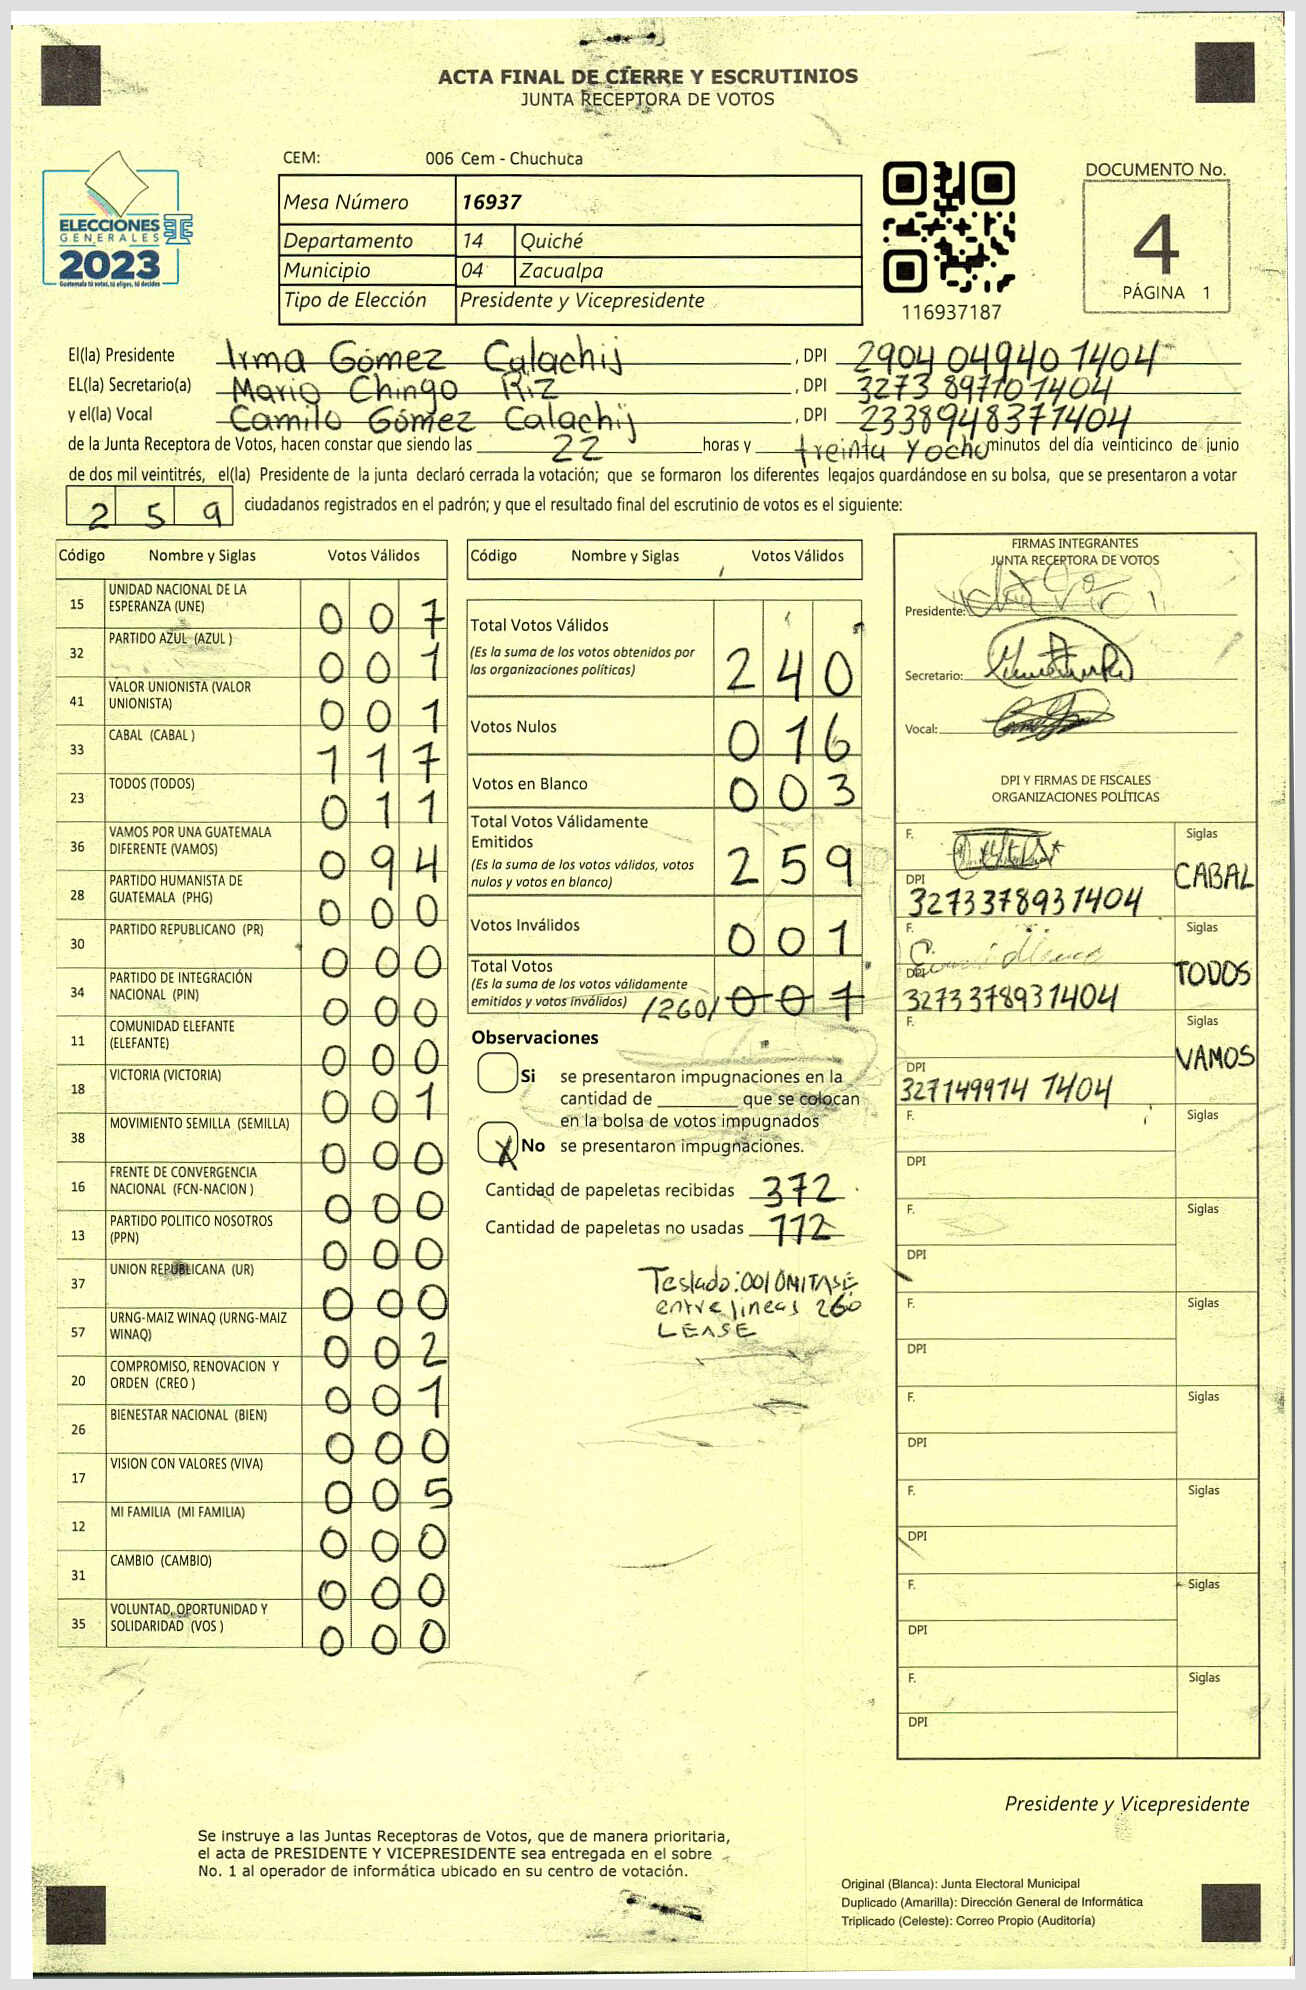 ACTA FINAL DE CIERRE Y ESCRUTINIOS
JUNTA RECEPTORA DE VOTOS
ELECCIONES
GENERALES
2023
Guatemala tú votas, tú eliges, tú decides
CEM: 006 Cem - Chuchuca
Mesa Número 16937
Departamento 14 Quiché
Municipio 04 Zacualpa
Tipo de Elección Presidente y Vicepresidente
116937187
DOCUMENTO No.
4
PÁGINA 1
El(la) Presidente Irma Gómez Calachij , DPI 2904 04940 1404
EL(la) Secretario(a) Mario Chingo Riz , DPI 3273 89710 1404
y el(la) Vocal Camilo Gómez Calachij , DPI 2338948371404
de la Junta Receptora de Votos, hacen constar que siendo las 22 horas y treinta y ocho minutos del día veinticinco de junio
de dos mil veintitrés, el(la) Presidente de la junta declaró cerrada la votación; que se formaron los diferentes legajos guardándose en su bolsa, que se presentaron a votar
2 5 9 ciudadanos registrados en el padrón; y que el resultado final del escrutinio de votos es el siguiente:
Código Nombre y Siglas Votos Válidos
15 UNIDAD NACIONAL DE LA
ESPERANZA (UNE) 0 0 7
32 PARTIDO AZUL (AZUL ) 0 0 1
41 VALOR UNIONISTA (VALOR
UNIONISTA) 0 0 1
33 CABAL (CABAL ) 1 1 7
23 TODOS (TODOS) 0 1 1
36 VAMOS POR UNA GUATEMALA
DIFERENTE (VAMOS) 0 9 4
28 PARTIDO HUMANISTA DE
GUATEMALA (PHG) 0 0 0
30 PARTIDO REPUBLICANO (PR) 0 0 0
34 PARTIDO DE INTEGRACIÓN
NACIONAL (PIN) 0 0 0
11 COMUNIDAD ELEFANTE
(ELEFANTE) 0 0 0
18 VICTORIA (VICTORIA) 0 0 1
38 MOVIMIENTO SEMILLA (SEMILLA) 0 0 0
16 FRENTE DE CONVERGENCIA
NACIONAL (FCN-NACION ) 0 0 0
13 PARTIDO POLITICO NOSOTROS
(PPN) 0 0 0
37 UNION REPUBLICANA (UR) 0 0 0
57 URNG-MAIZ WINAQ (URNG-MAIZ
WINAQ) 0 0 2
20 COMPROMISO, RENOVACION Y
ORDEN (CREO ) 0 0 1
26 BIENESTAR NACIONAL (BIEN) 0 0 0
17 VISION CON VALORES (VIVA) 0 0 5
12 MI FAMILIA (MI FAMILIA) 0 0 0
31 CAMBIO (CAMBIO) 0 0 0
35 VOLUNTAD, OPORTUNIDAD Y
SOLIDARIDAD (VOS ) 0 0 0
Código Nombre y Siglas Votos Válidos
Total Votos Válidos
(Es la suma de los votos obtenidos por
las organizaciones políticas) 2 4 0
Votos Nulos 0 1 6
Votos en Blanco 0 0 3
Total Votos Válidamente
Emitidos
(Es la suma de los votos válidos, votos
nulos y votos en blanco) 2 5 9
Votos Inválidos 0 0 1
Total Votos
(Es la suma de los votos válidamente
emitidos y votos inválidos) /260/ 0 0 1
Observaciones
Si se presentaron impugnaciones en la
cantidad de ________ que se colocan
en la bolsa de votos impugnados
X No se presentaron impugnaciones.
Cantidad de papeletas recibidas 372
Cantidad de papeletas no usadas 112
Testado: 001 OMITASE
entre líneas 260
LEASE
FIRMAS INTEGRANTES
JUNTA RECEPTORA DE VOTOS
Presidente:
Secretario:
Vocal:
DPI Y FIRMAS DE FISCALES
ORGANIZACIONES POLÍTICAS
F. Siglas
CABAL
DPI
3273378931404
F. Siglas
TODOS
DPI
3273378931404
F. Siglas
VAMOS
DPI
327149914 1404
F. Siglas
DPI
F. Siglas
DPI
F. Siglas
DPI
F. Siglas
DPI
F. Siglas
DPI
F. Siglas
DPI
F. Siglas
DPI
Presidente y Vicepresidente
Se instruye a las Juntas Receptoras de Votos, que de manera prioritaria,
el acta de PRESIDENTE Y VICEPRESIDENTE sea entregada en el sobre
No. 1 al operador de informática ubicado en su centro de votación.
Original (Blanca): Junta Electoral Municipal
Duplicado (Amarilla): Dirección General de Informática
Triplicado (Celeste): Correo Propio (Auditoría)